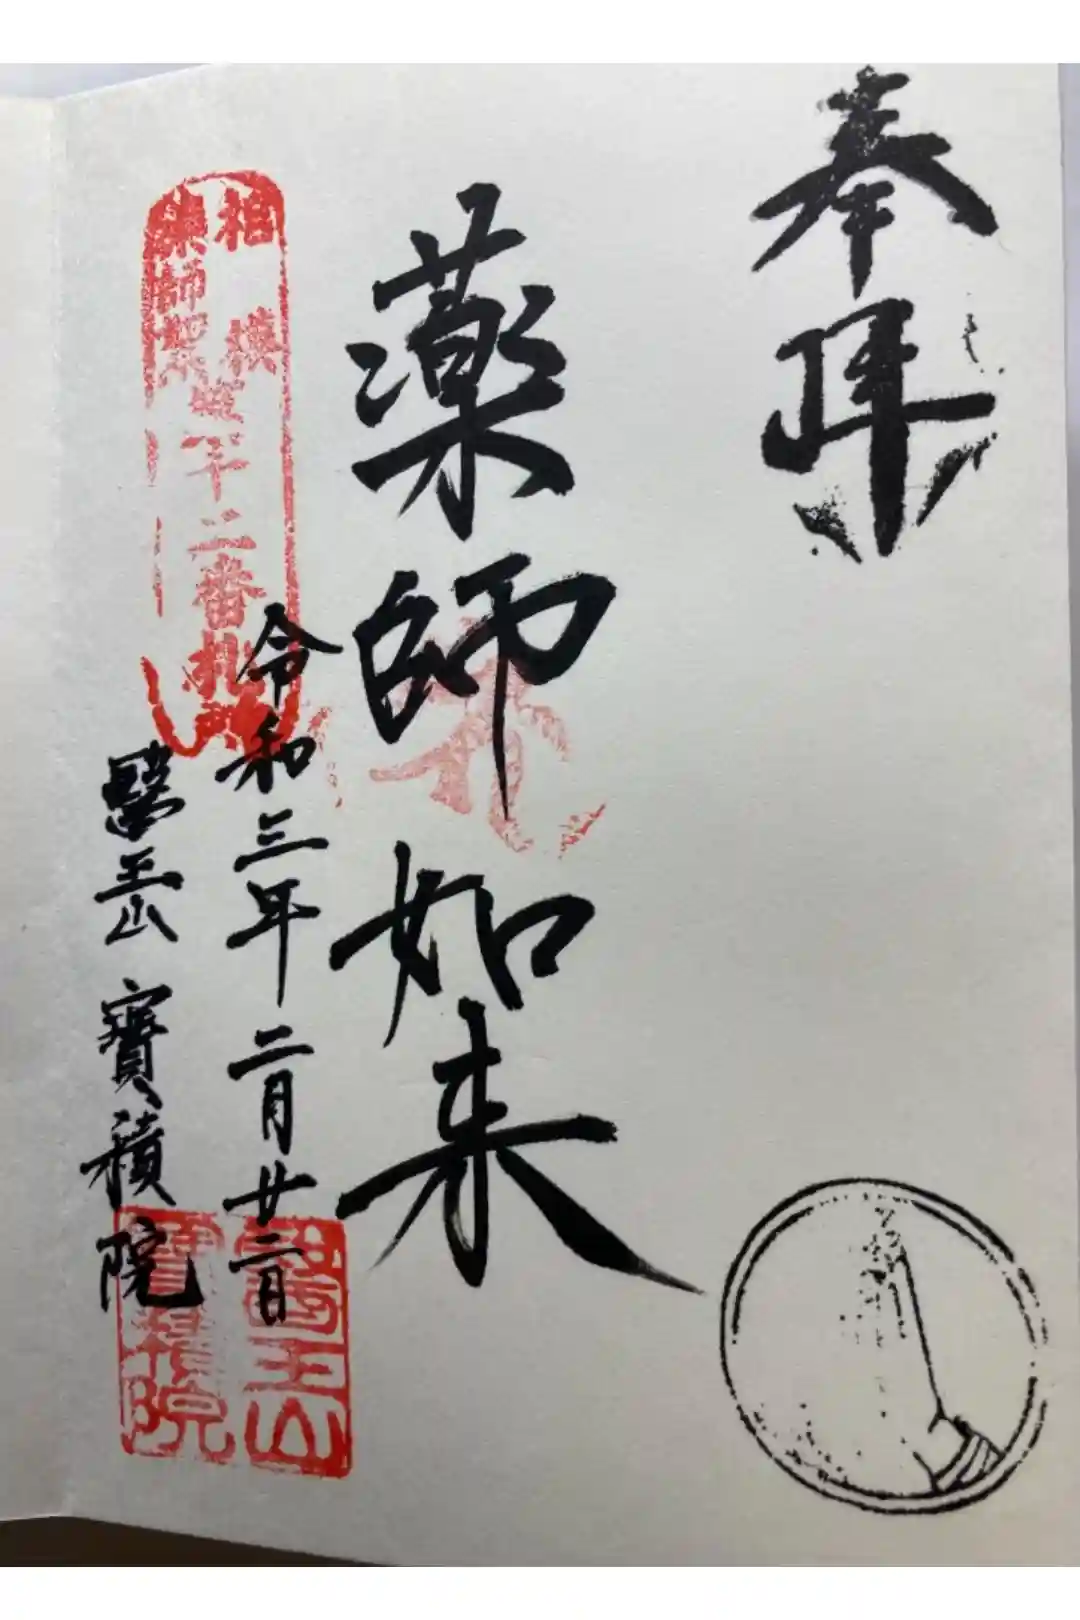 奉拝
薬師如来
令和三年二月廿二日
相模
薬師如来
第十二番札所
醫王山
寳積院
醫王山
寳積院